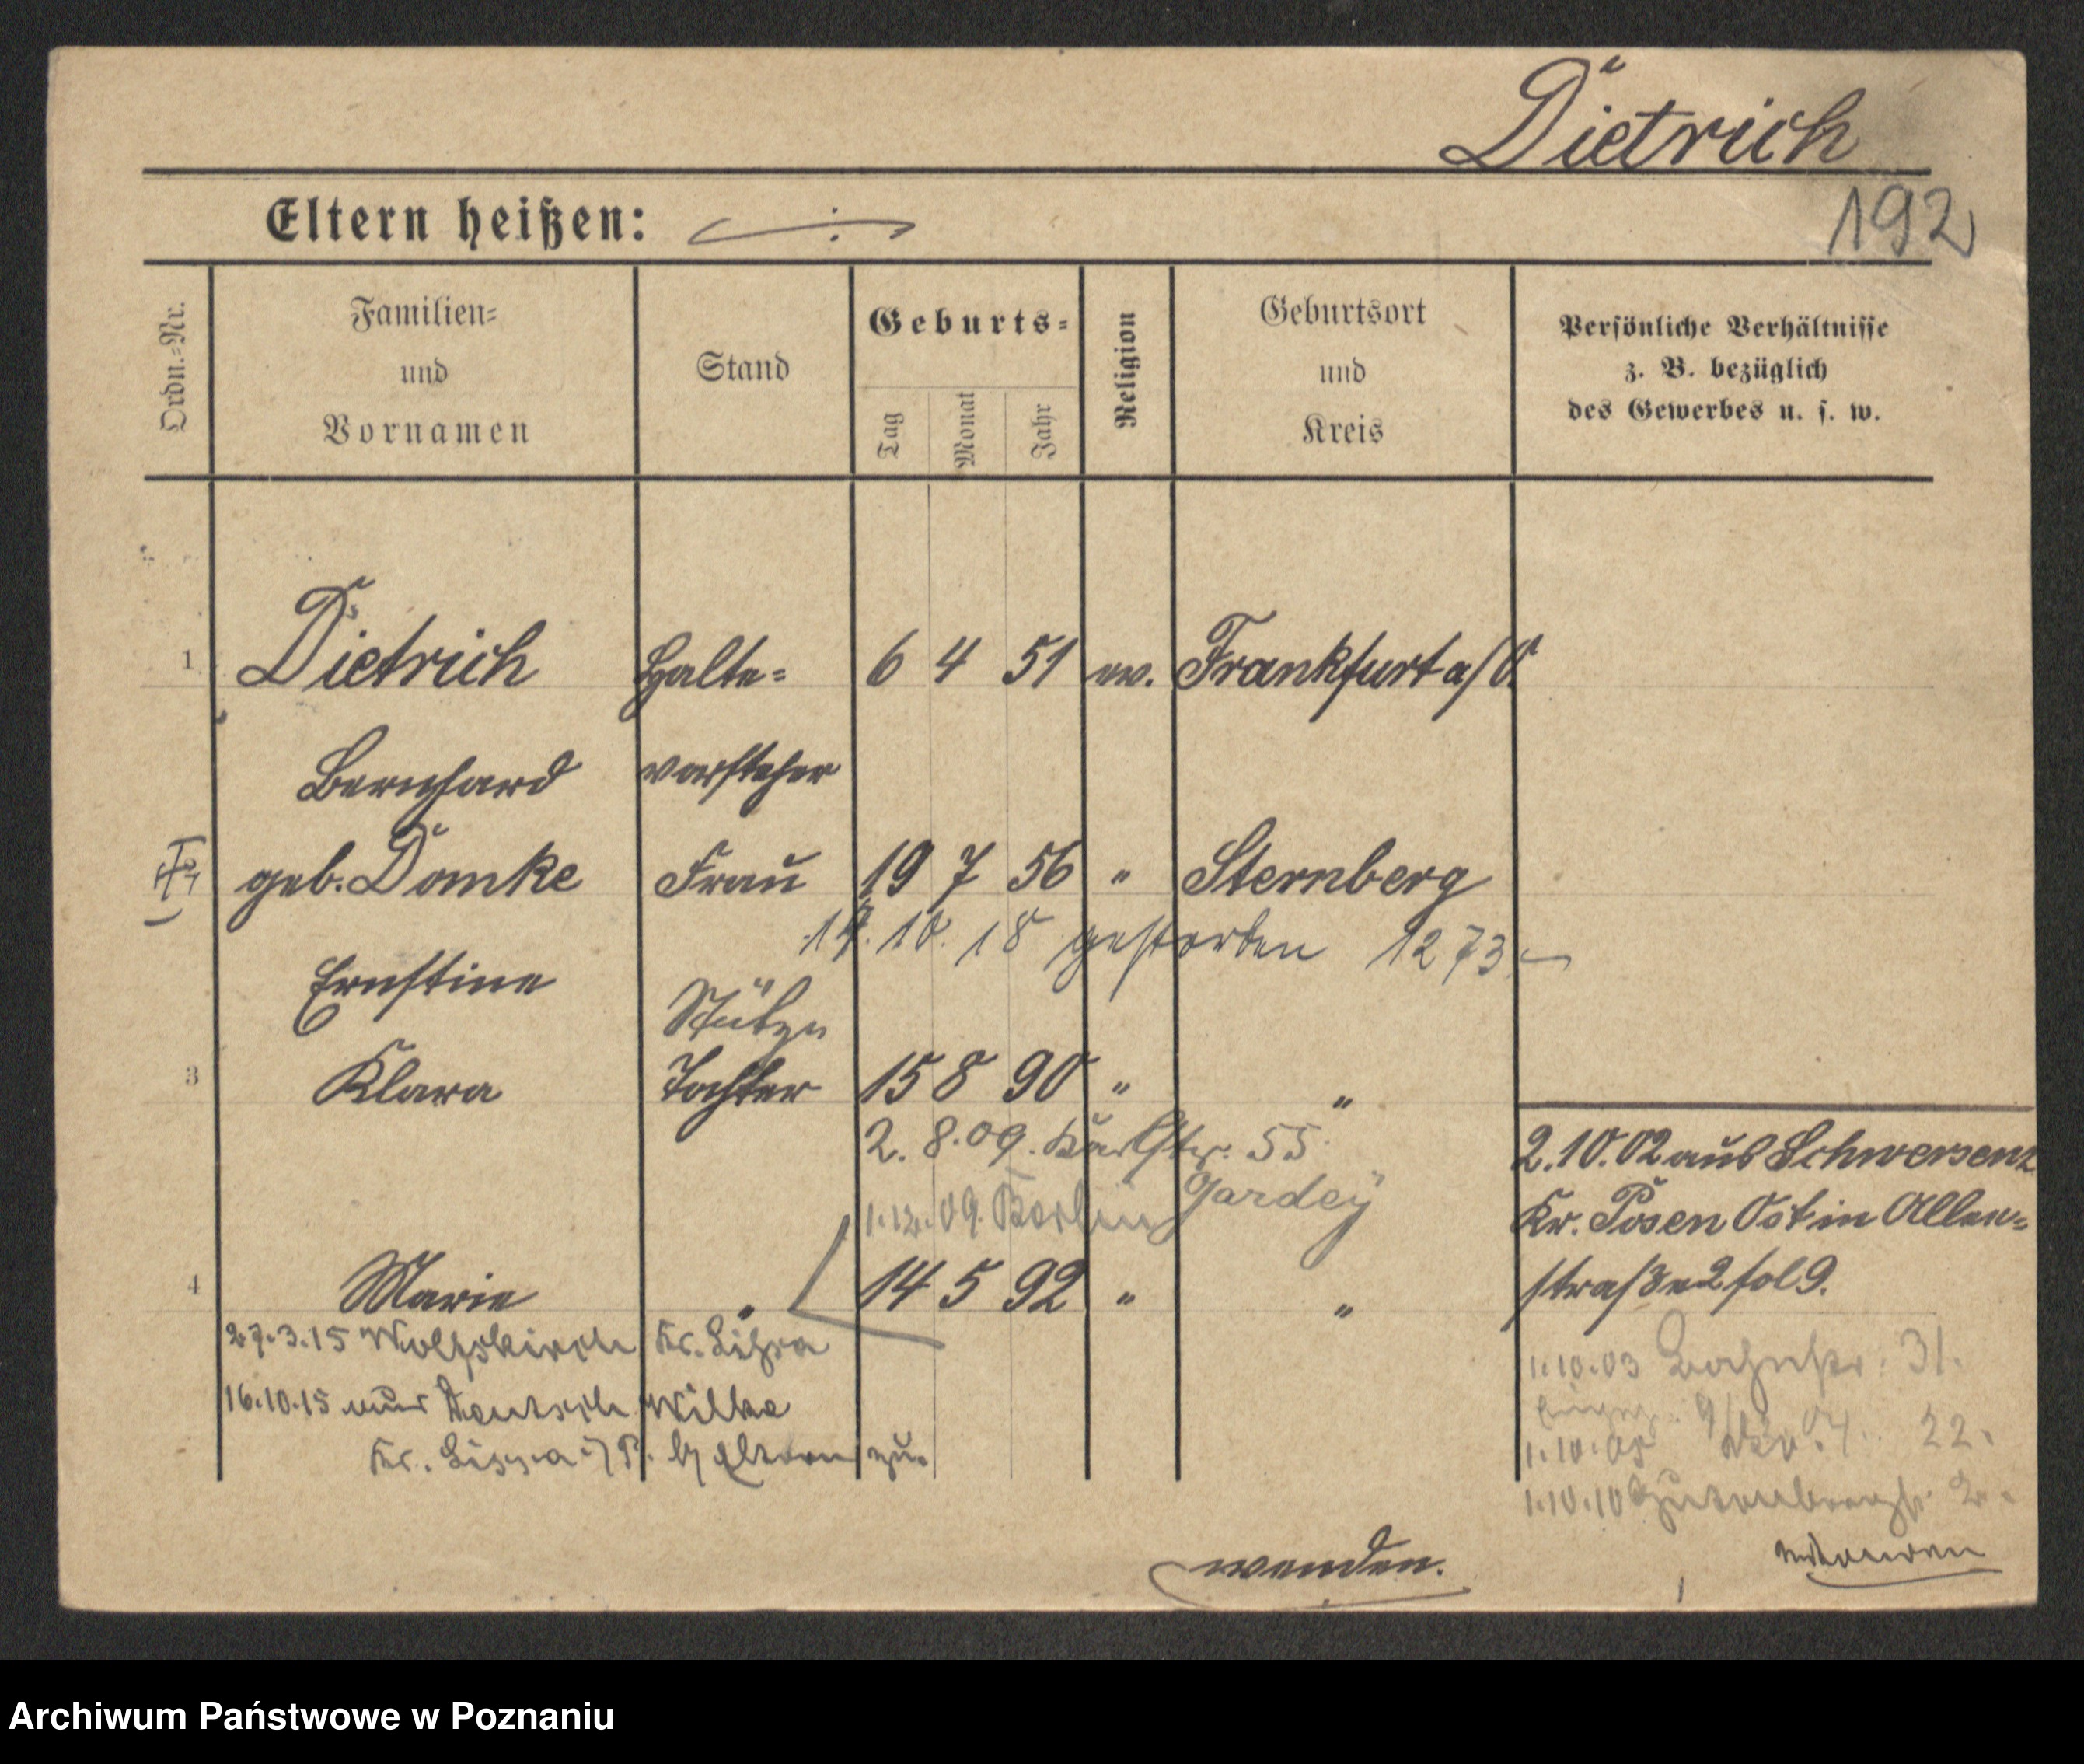 Dietrich
192
Eltern heißen:
Ordn.=Nr.
Familien=
und
Vornamen
Stand
Geburts=
Tag
Monat
Jahr
Religion
Geburtsort
und
Kreis
Persönliche Verhältnisse
z. B. bezüglich
des Gewerbes u. s. w.
1 Dietrich Halte= 6 4 51 ev. Frankfurt a/O.
Bernhard vorsteher
geb. Domke Frau 19 7 56 " Sternberg
14. 10. 18 gestorben 1273
Ernstine
Stütze
3 Klara Tochter 15 8 90 " "
2. 8. 09. Karlstr. 55
Gardey
1.12.09. Berlin
2.10.02 aus Schwersenz
Kr. Posen Ost in Allen=
straße 2 fol 9.
4 Marie " 14 5 92 " "
27.3.15 Wolfskirch Kr. Lissa
16.10.15 nur Deutsch Wilke
Kr. Lissa i/P. b/ Eltern zu.
1.10.03 31.
1.10.05 22.
1.10.10 Gutenbergstr. 2.
wenden.
wenden
Archiwum Państwowe w Poznaniu